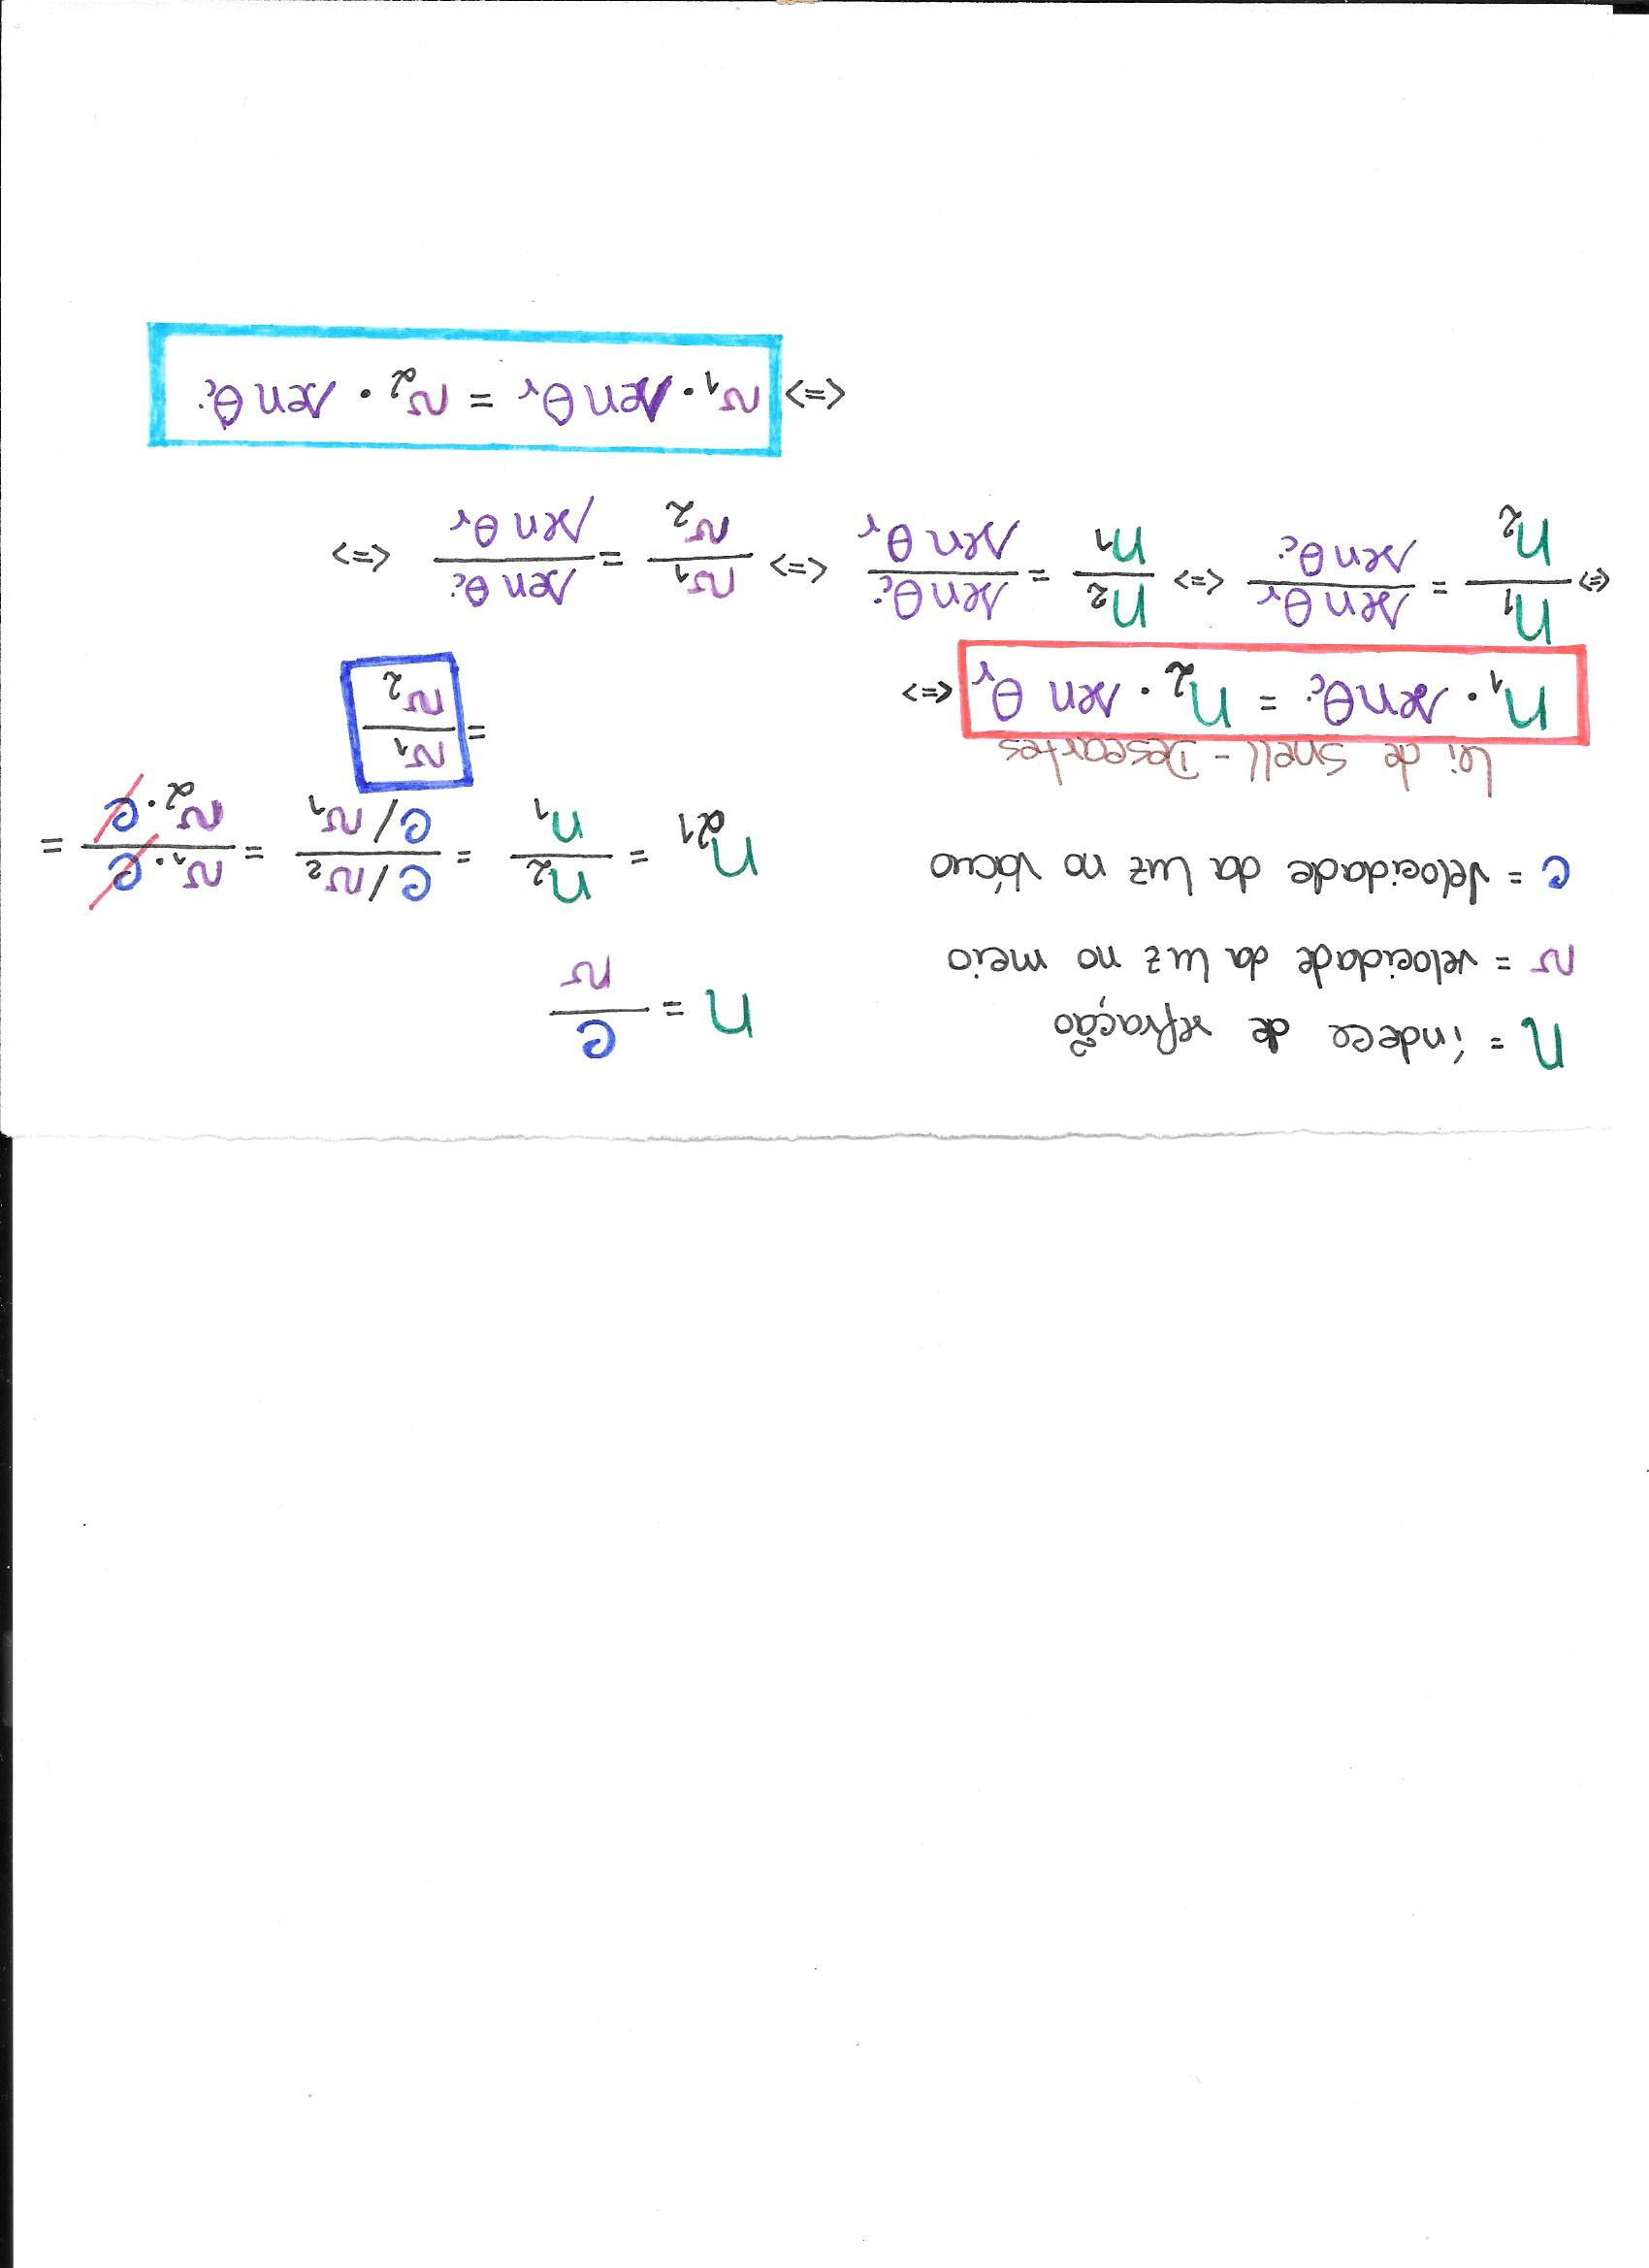 n = índece de refração
n = c/v
v = velocidade da luz no meio
c = velocidade da luz no vácuo
n21 = n2/n1 = (c/v2)/(c/v1) = (v1·c)/(v2·c) =
= v1/v2
Lei de Snell-Descartes
n1 · sen θi = n2 · sen θr <=>
<=> n1/n2 = sen θr/sen θi <=> n2/n1 = sen θi/sen θr <=> v1/v2 = sen θi/sen θr <=>
<=> v1 · sen θr = v2 · sen θi